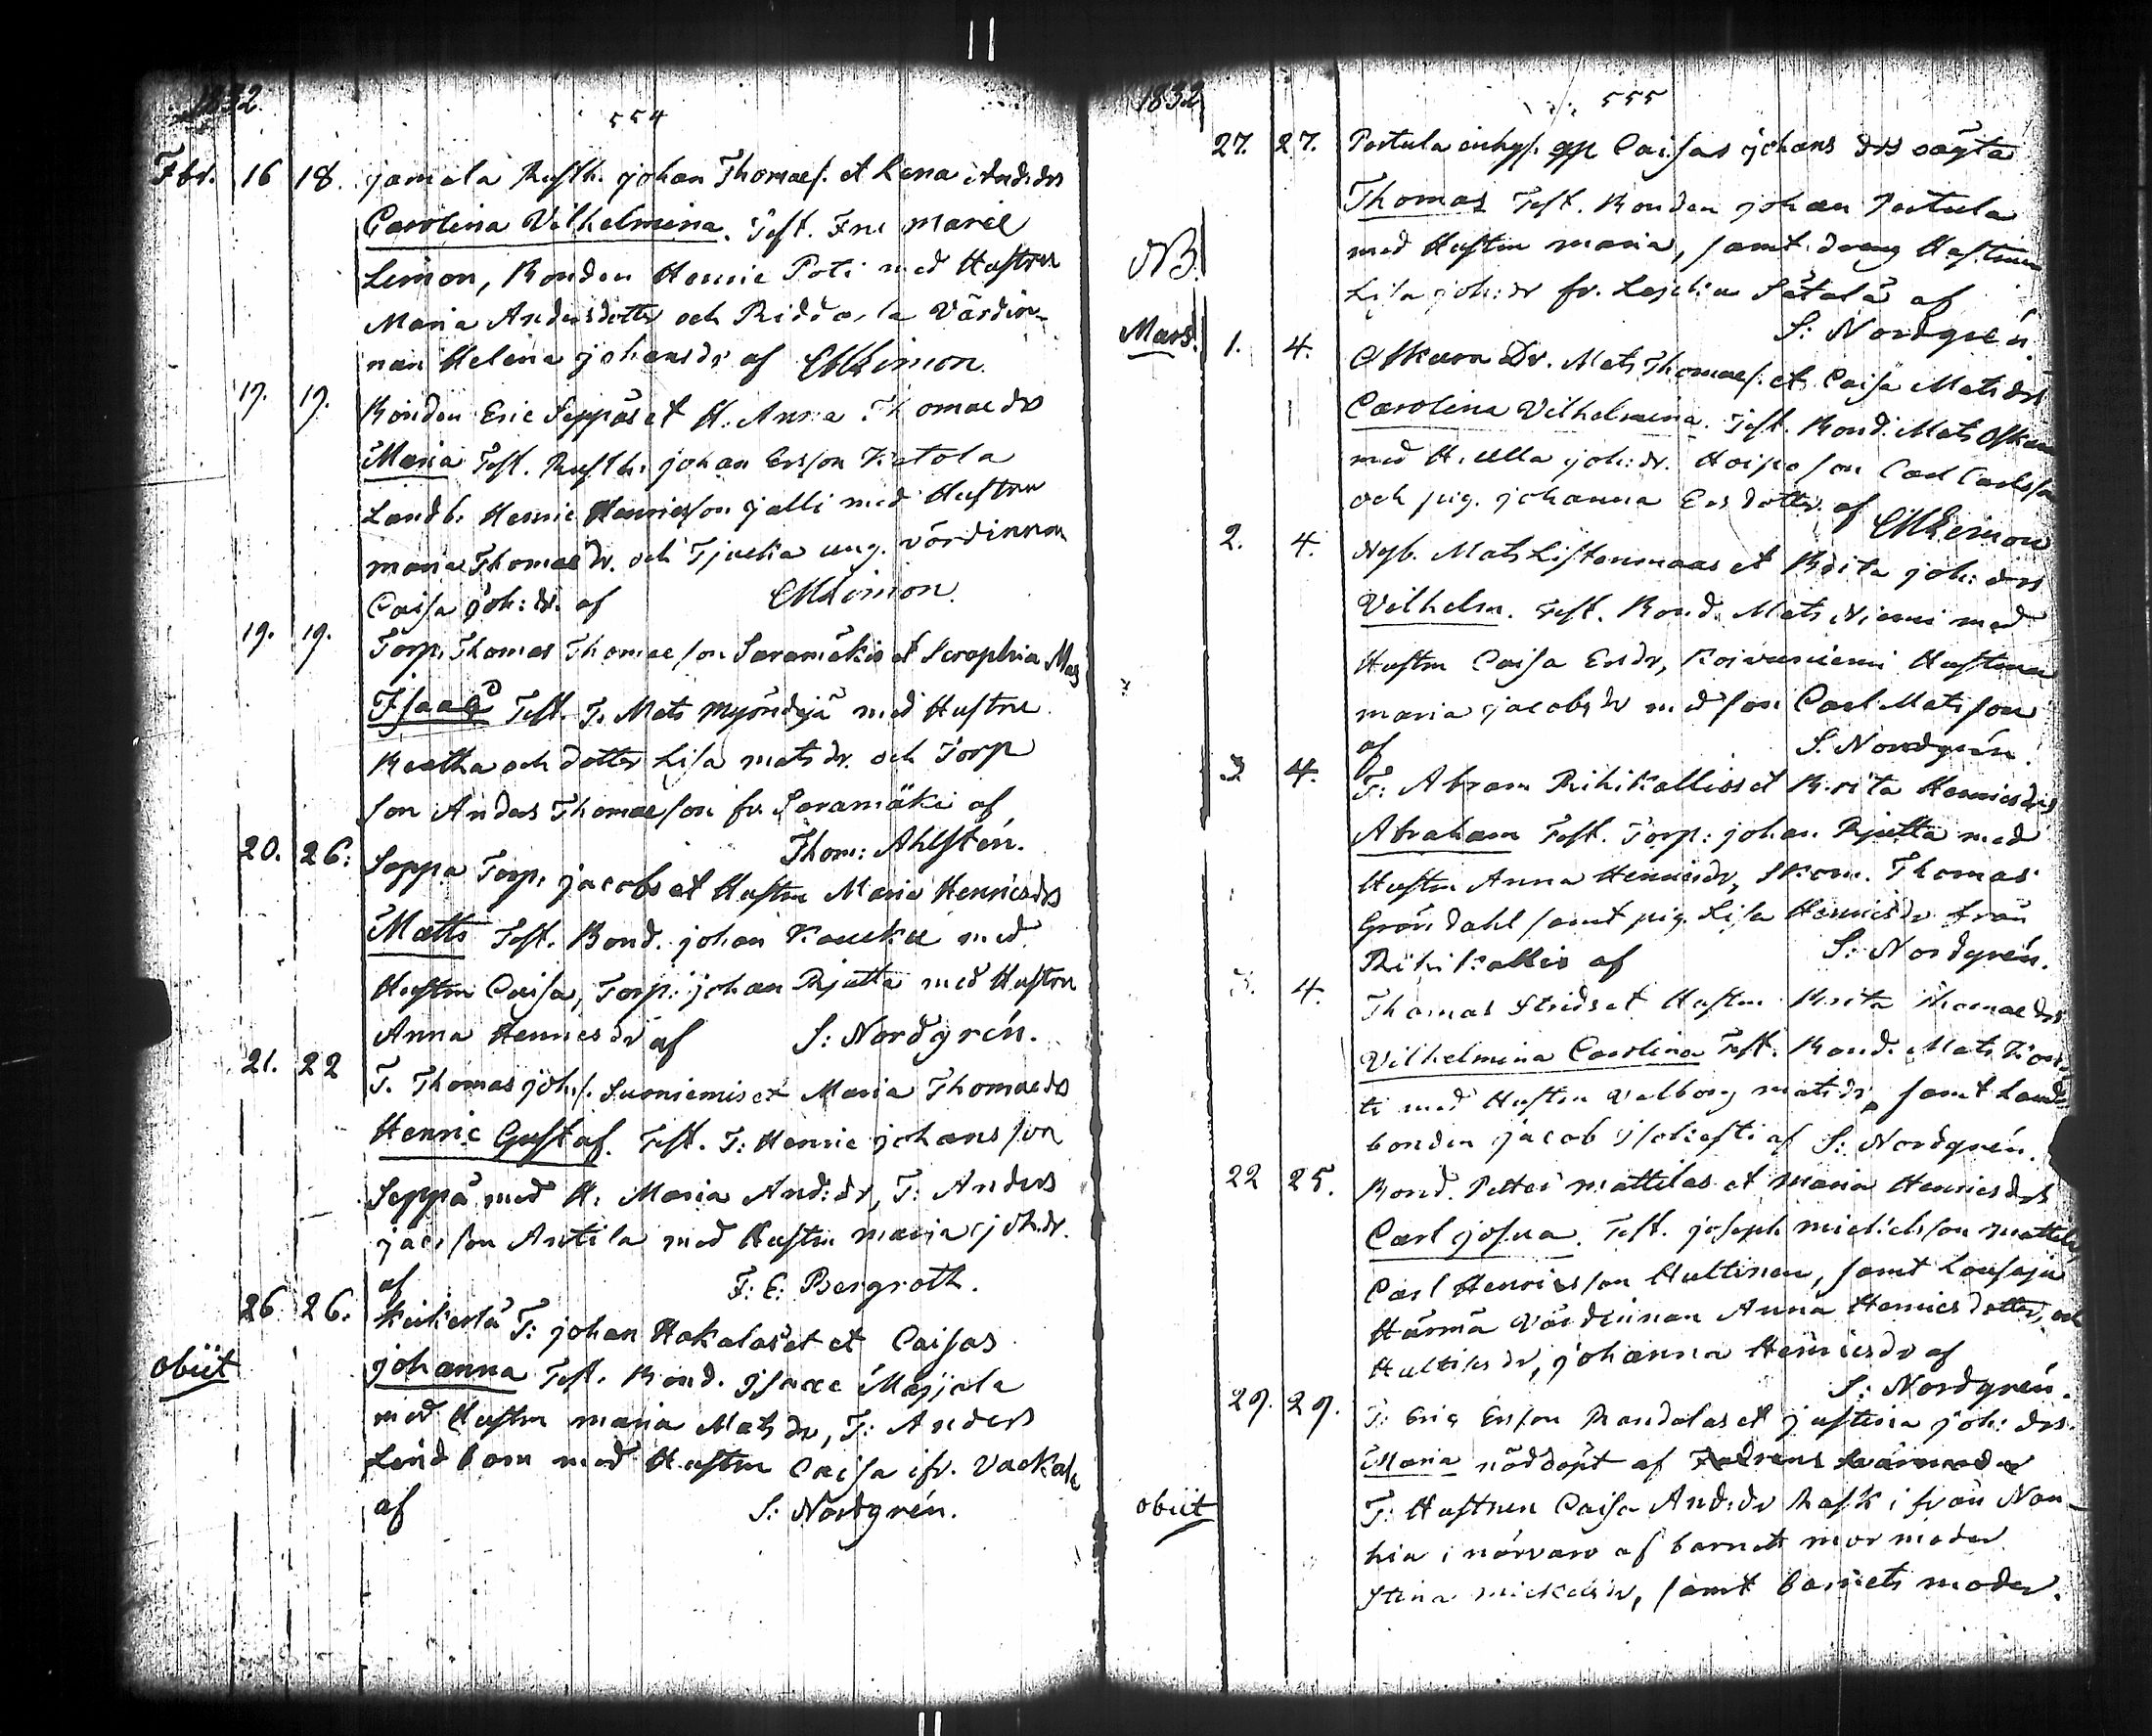 1832
554
Fbr. 16 18. jamala Rusth. johan Thomaes. et Lena And:drs
Carolina Vilhelmina. Test. Fru Marie
Limon, Bonden Henric Poti med Hustru
Maria Andersdotter och Riddala Värdin-
nan Helena johansdr af CMLimon.
17. 17. Bonden Eric Seppäs et H. Anna Thomaedrs
Maria Test. Rusth. johan Ersson
Landb. Henric Henricsson jalli med Hustru
maria Thomaedr. och Tjucka ung. värdinnan
Caisa joh:dr. af CMLimon.
19. 19. Torp. Thomas Thomaeson Saramäkis et Seraphia
Isaac Test. T. Mats med Hustru
Beatha och dotter Lisa matsdr. och Torp
son Anders Thomaeson fr. Saramäki af
Thom: Ahlstén.
20. 26: Seppä Torp. jacobs et Hustru Maria Henricsdrs
Matts Test. Bond. johan Kauku med
Hustru Caisa, Torp: johan Rjutta med Hustru
Anna Henricsdr af S: Nordgrén.
21. 22 T. Thomas joh:s. Suoniemis et Maria Thomaedrs
Henric Gustaf. Test. T: Henric johansson
Seppä med H. Maria And:dr, T: Anders
jacosson Antila med Hustru maria joh:dr.
af F: E: Bergroth.
26. 26. T: johan Hakalas et et Caisas
obiit johanna Test. Bond. Isaac Majjala
med Hustru maria Matsdr, T: Anders
Lindbom med Hustru Caisa ifr.
af S: Nordgrén.
1832
555
27. 27. Pertula inhys. gp Caisas johansdrs oägta
Thomas Test. Bonden johan Pertula
NB. med Hustru maria, samt dräng Hustrun
Lisa joh:dr fr. Sätalä af
S: Nordgrén.
Mars. 1. 4. Oskara Dr. Mats Thomaes. et Caisa Matsdrs
Carolina Vilhelmina. Test. Bond. Mats
med H. Ulla joh:dr. Hoipo son Carl Carlsson
och pig. johanna Ersdotter af CMLimon
2. 4. Nyb. Mats Listenmaas et Brita joh:drs
Vilhelm. Test. Bond. Mats Niemi med
Hustru Caisa Ersdr, Koivuniemi Hustrun
maria jacobsdr med son Carl Matsson
af S. Nordgrén.
3 4. T: Abram Rihikallios et Brita Henricsdrs
Abraham Test. Torp: johan Rjutta med
Hustru Anna Henricsdr, Skom. Thomas
Gröndahl samt pig. Lisa Henricsdr från
Rihikallio af S: Nordgrén.
3. 4. Thomas Strids et Hustru Brita Thomaedrs
Vilhelmina Carolina Test. Bond. Mats
ti med Hustru Valborg matsdr, samt Land-
bonden jacob af S: Nordgrén.
22 25. Bond. Petter mattilas et maria Henricsdrs
Carl josua. Test. joseph michelsson
Carl Henricsson Hultinen, samt
Härmä Värdinnan Anna Henricsdotter, och
dr, johanna Henricsdr af
S: Nordgrén.
29. 29. T: Eric Ersson Randalas et justina joh:drs.
Maria nöddöpt af
obiit T: Hustrun Caisa And:dr Rask ifrån Nou-
hia i närvaro af barnets mormoder
Stina mickelsdr, samt barnets moder.